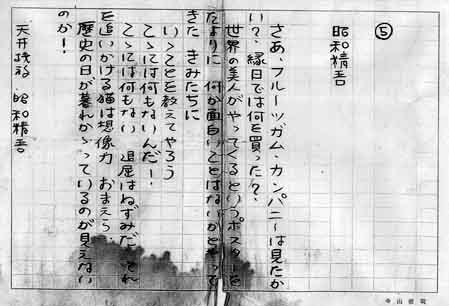 ⑤
昭和精吾
さあ、フルーツガム・カンパニーは見たか
い?、縁日では何を買った?、
世界の美人がやってくるというポスターを
たよりに 何か面白いことはないかと
きた きみたちに
いゝことを教えてやろう
こゝには何もないんだー!
こゝには何もない 退屈はねずみだ それ
を追いかける猫は想像力 おまえら
歴史の日が暮れかゝっているのが見えない
のか!
天井桟敷・昭和精吾